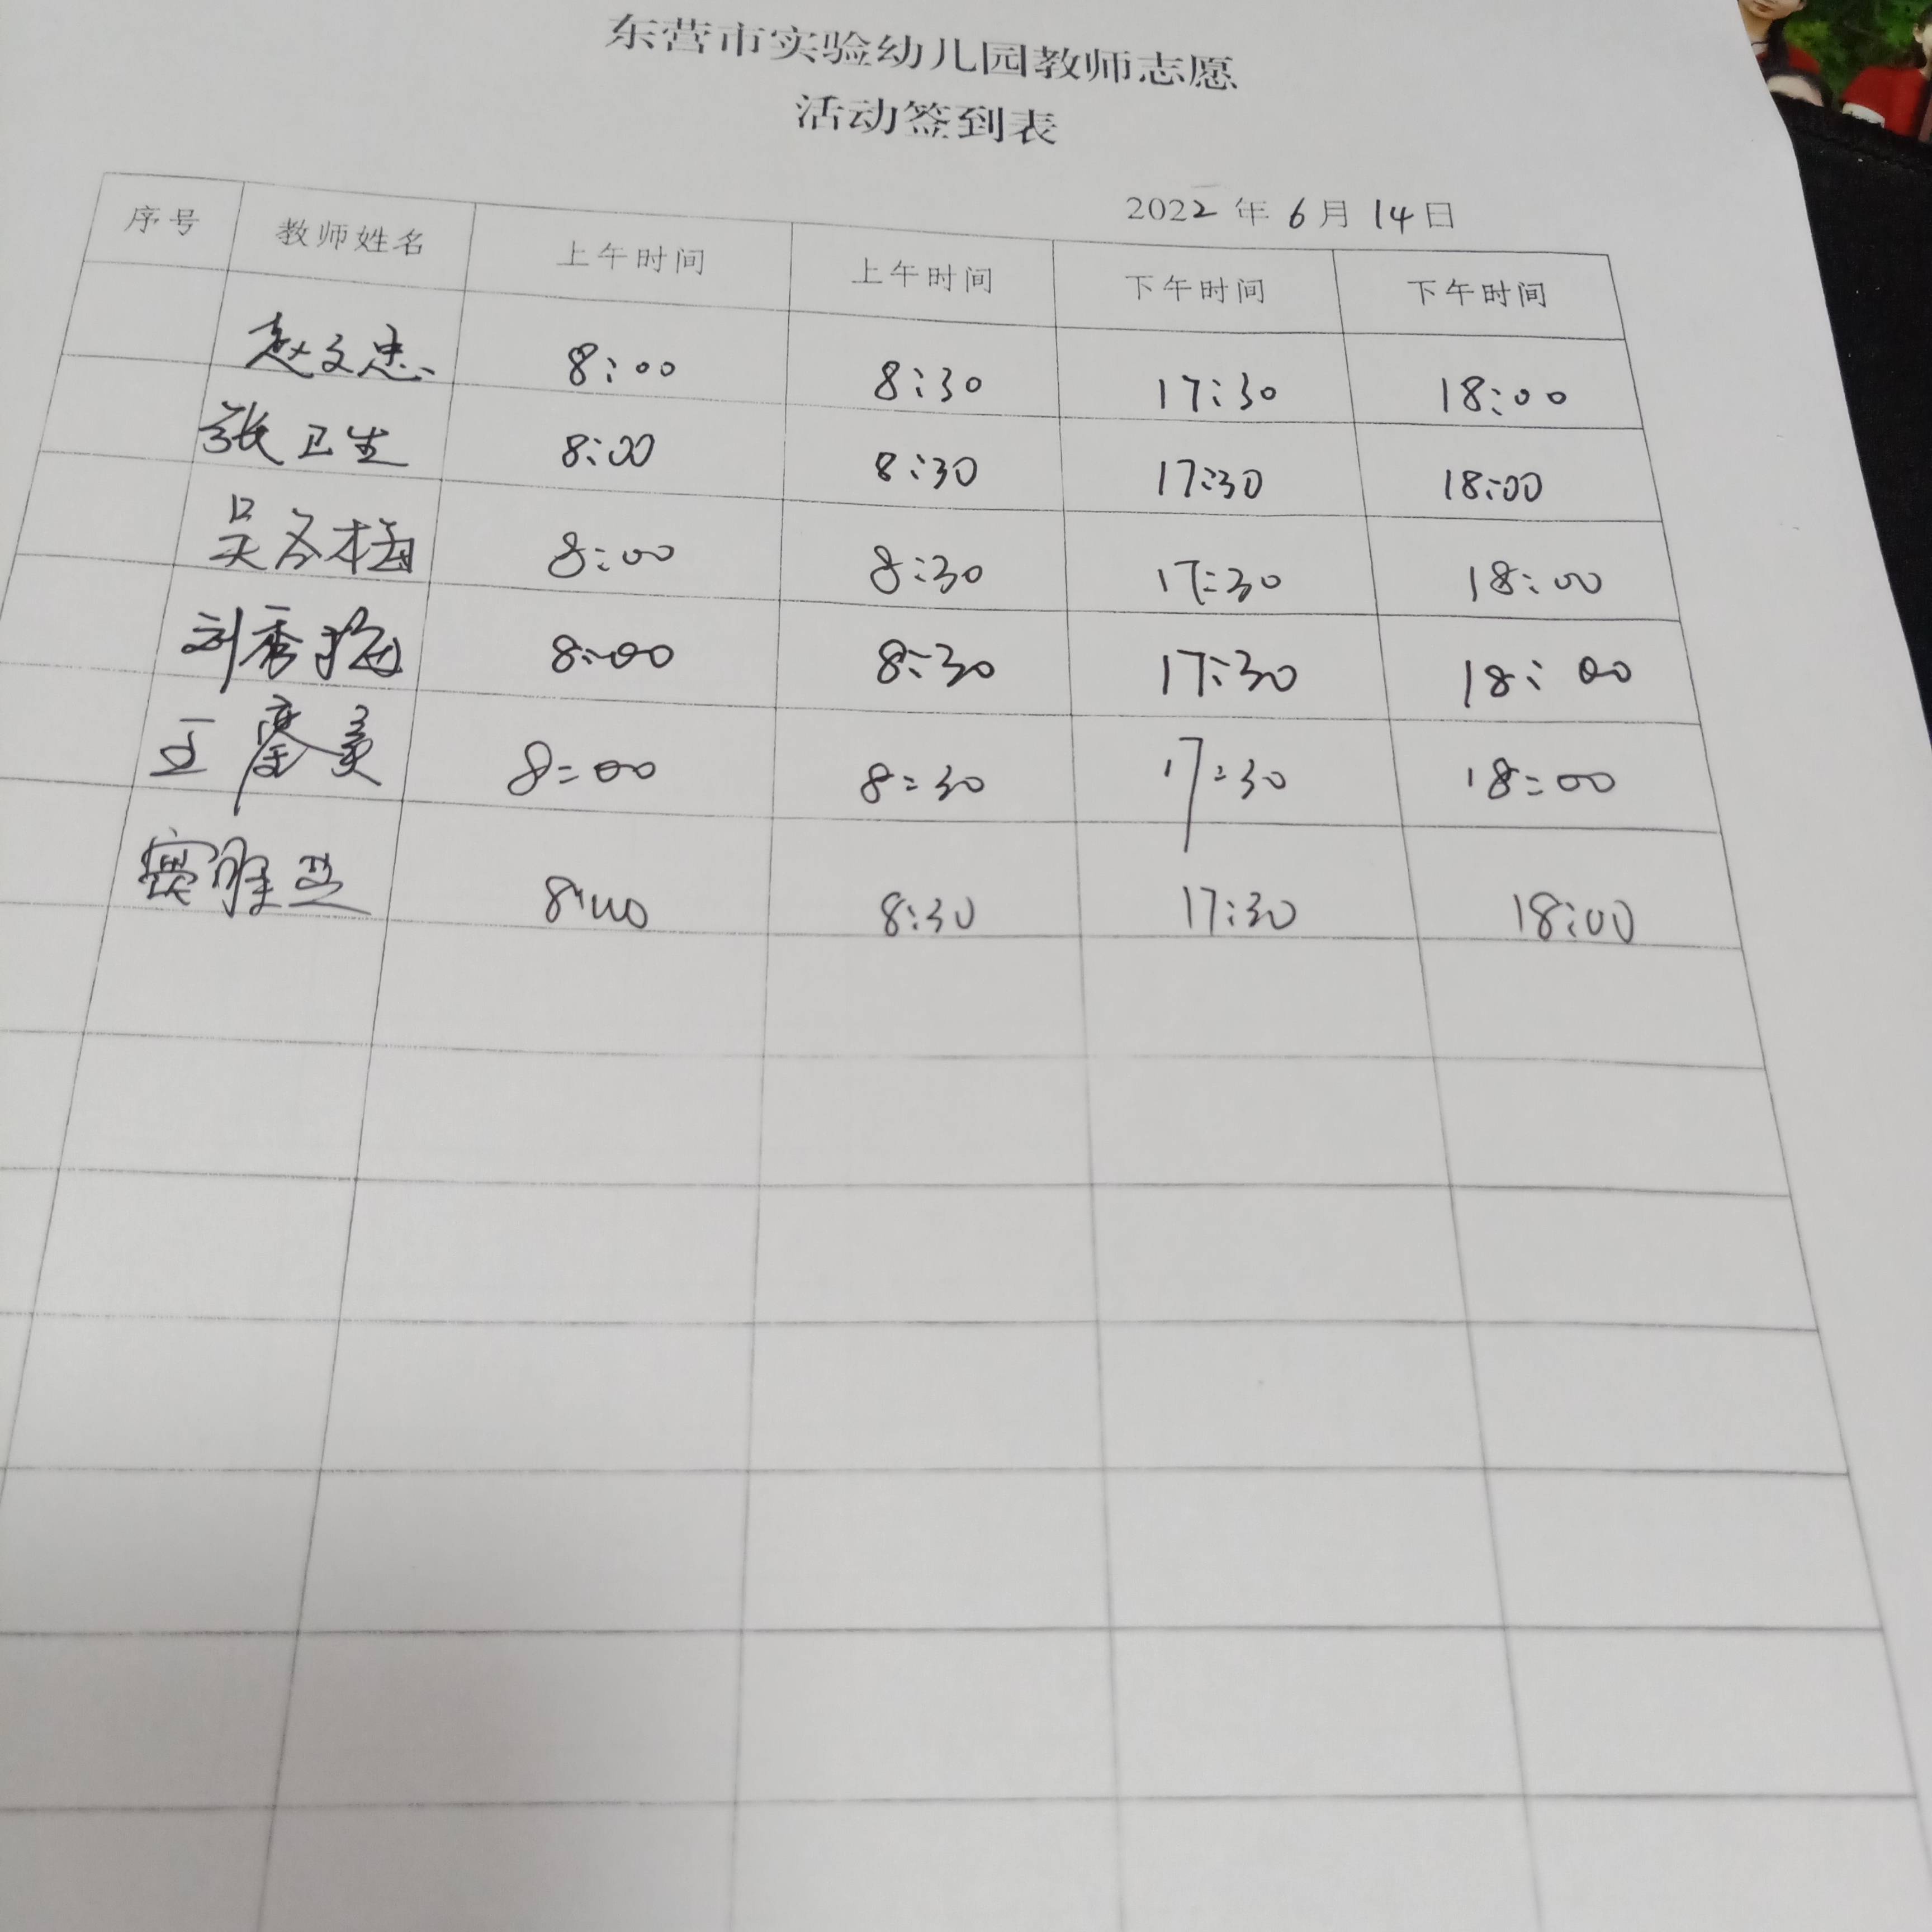 东营市实验幼儿园教师志愿
活动签到表
2022年6月14日
序号 教师姓名 上午时间 上午时间 下午时间 下午时间
赵文忠 8:00 8:30 17:30 18:00
张卫生 8:00 8:30 17:30 18:00
吴冬梅 8:00 8:30 17:30 18:00
刘秀梅 8:00 8:30 17:30 18:00
王 8:00 8:30 17:30 18:00
8:00 8:30 17:30 18:00